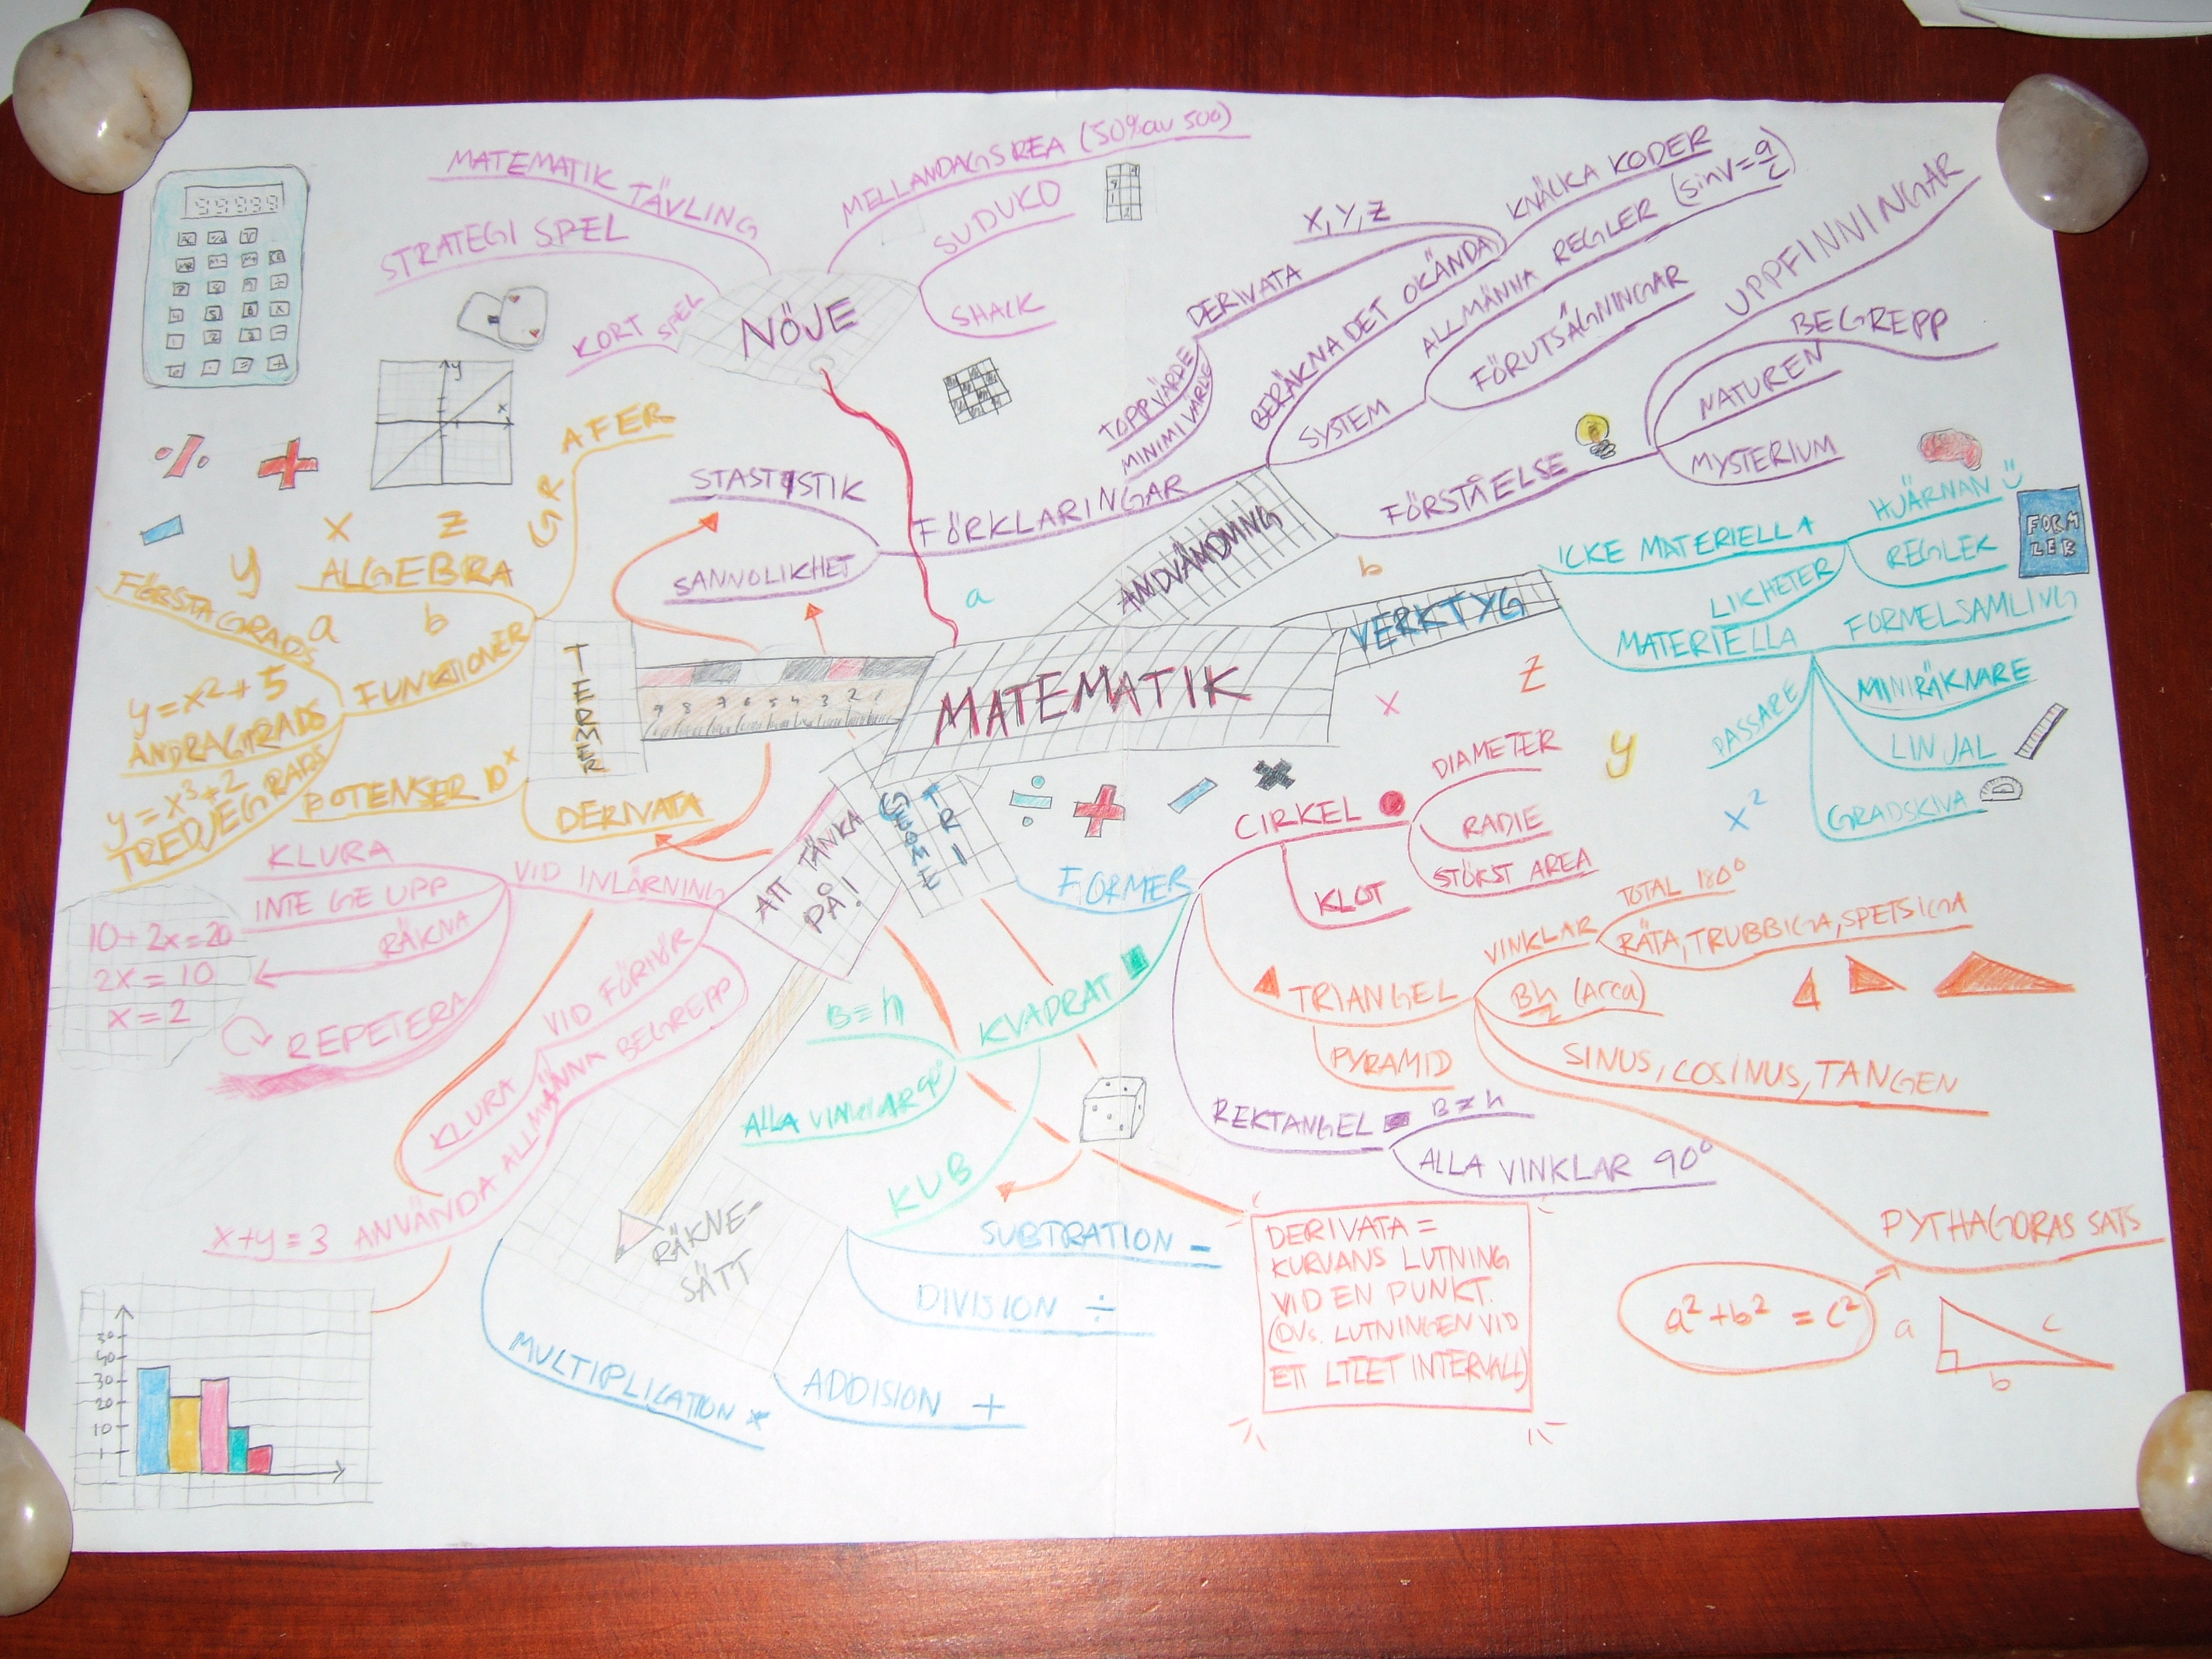 MATEMATIK
NÖJE
MATEMATIK TÄVLING
STRATEGI SPEL
KORT SPEL
MELLANDAGSREA (50% av 500)
SUDUKO
SHACK
ANDVÄNDNING
FÖRKLARINGAR
STASTISTIK
SANNOLIKHET
BERÄKNA DET OKÄNDA
X, Y, Z
DERIVATA
TOPPVÄRDE
MINIMIVÄRDE
KNÄCKA KODER
SYSTEM
ALLMÄNNA REGLER (sinv = a/c)
FÖRUTSÄGNINGAR
FÖRSTÅELSE
UPPFINNINGAR
BEGREPP
NATUREN
MYSTERIUM
a
b
VERKTYG
ICKE MATERIELLA
HJÄRNAN
REGLER
LIKHETER
FORM
LER
MATERIELLA
FORMELSAMLING
MINIRÄKNARE
LINJAL
GRADSKIVA
PASSARE
x
z
y
x²
TERMER
GRAFER
y
x
x
z
ALGEBRA
y
a
b
FUNKTIONER
FÖRSTAGRADS
y = x² + 5
ANDRAGRADS
y = x³ + 2
TREDJEGRADS
POTENSER 10ˣ
DERIVATA
% +
-
9 8 7 6 5 4 3 2 1
ATT TÄNKA
PÅ!
VID INLÄRNING
KLURA
INTE GE UPP
RÄKNA
REPETERA
10 + 2x = 20
2x = 10
x = 2
VID FÖRHÖR
KLURA
ANVÄNDA ALLMÄNNA BEGREPP
x + y = 3
GEOME
TRI
÷ + - ×
FORMER
CIRKEL
DIAMETER
RADIE
STÖRST AREA
KLOT
TRIANGEL
VINKLAR
TOTAL 180°
RÄTA, TRUBBIGA, SPETSIGA
Bh/2 (Area)
SINUS, COSINUS, TANGEN
PYRAMID
PYTHAGORAS SATS
a² + b² = c²
a
b
c
REKTANGEL
B ≠ h
ALLA VINKLAR 90°
KVADRAT
B = h
ALLA VINKLAR 90°
KUB
RÄKNE-
SÄTT
SUBTRATION -
DIVISION ÷
ADDISION +
MULTIPLICATION ×
DERIVATA =
KURVANS LUTNING
VID EN PUNKT.
(DVS. LUTNINGEN VID
ETT LITET INTERVALL)